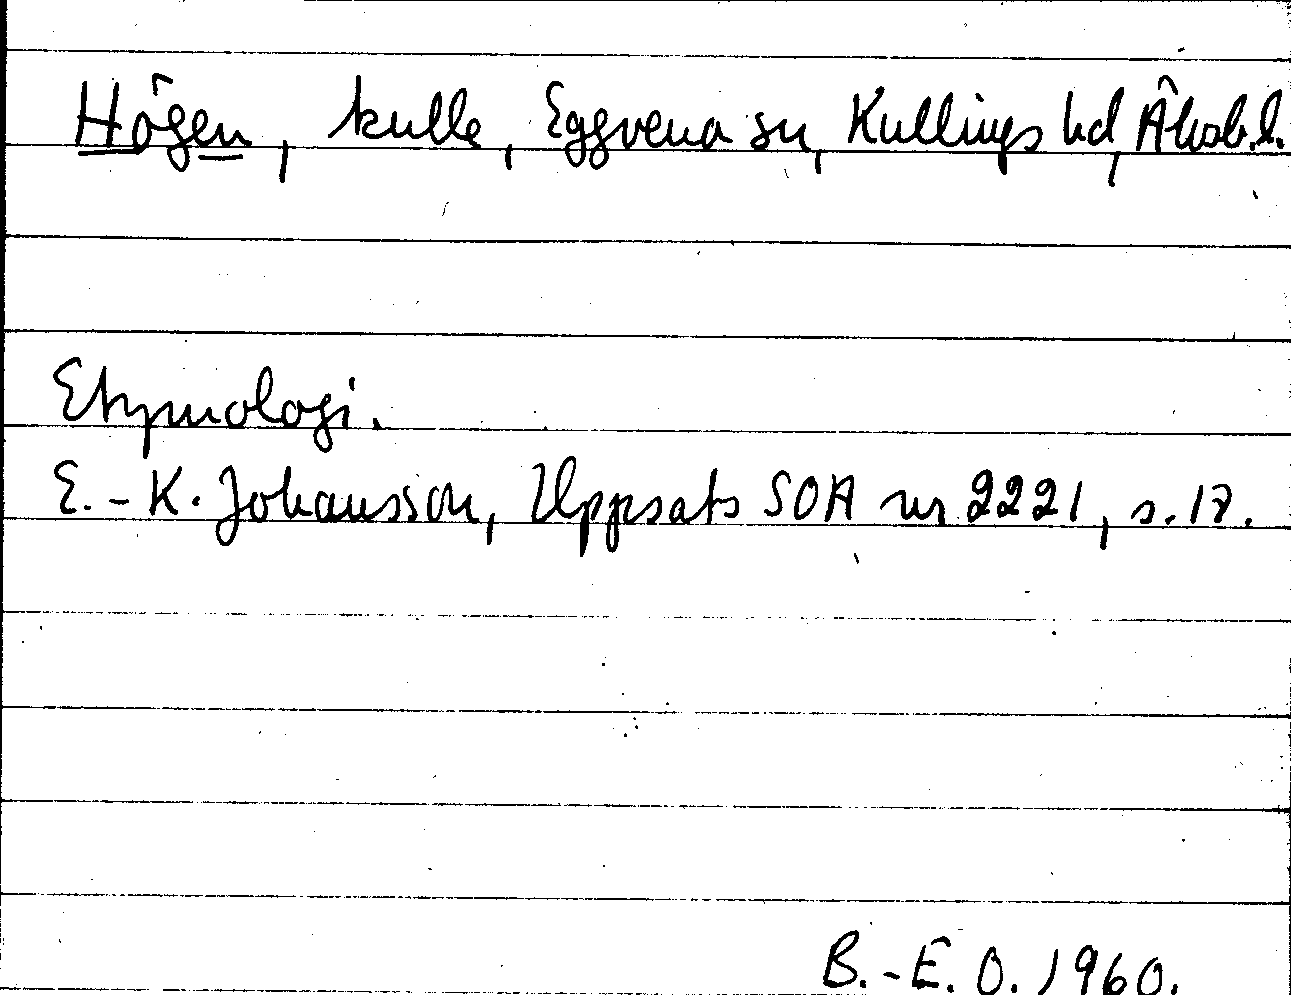 Högen, kulle, Eggvena sn, Kullings hd, Älvsb. l.
Etymologi.
E.-K. Johansson, Uppsats SOA nr 2221, s. 18.
B.-E. O. 1960.